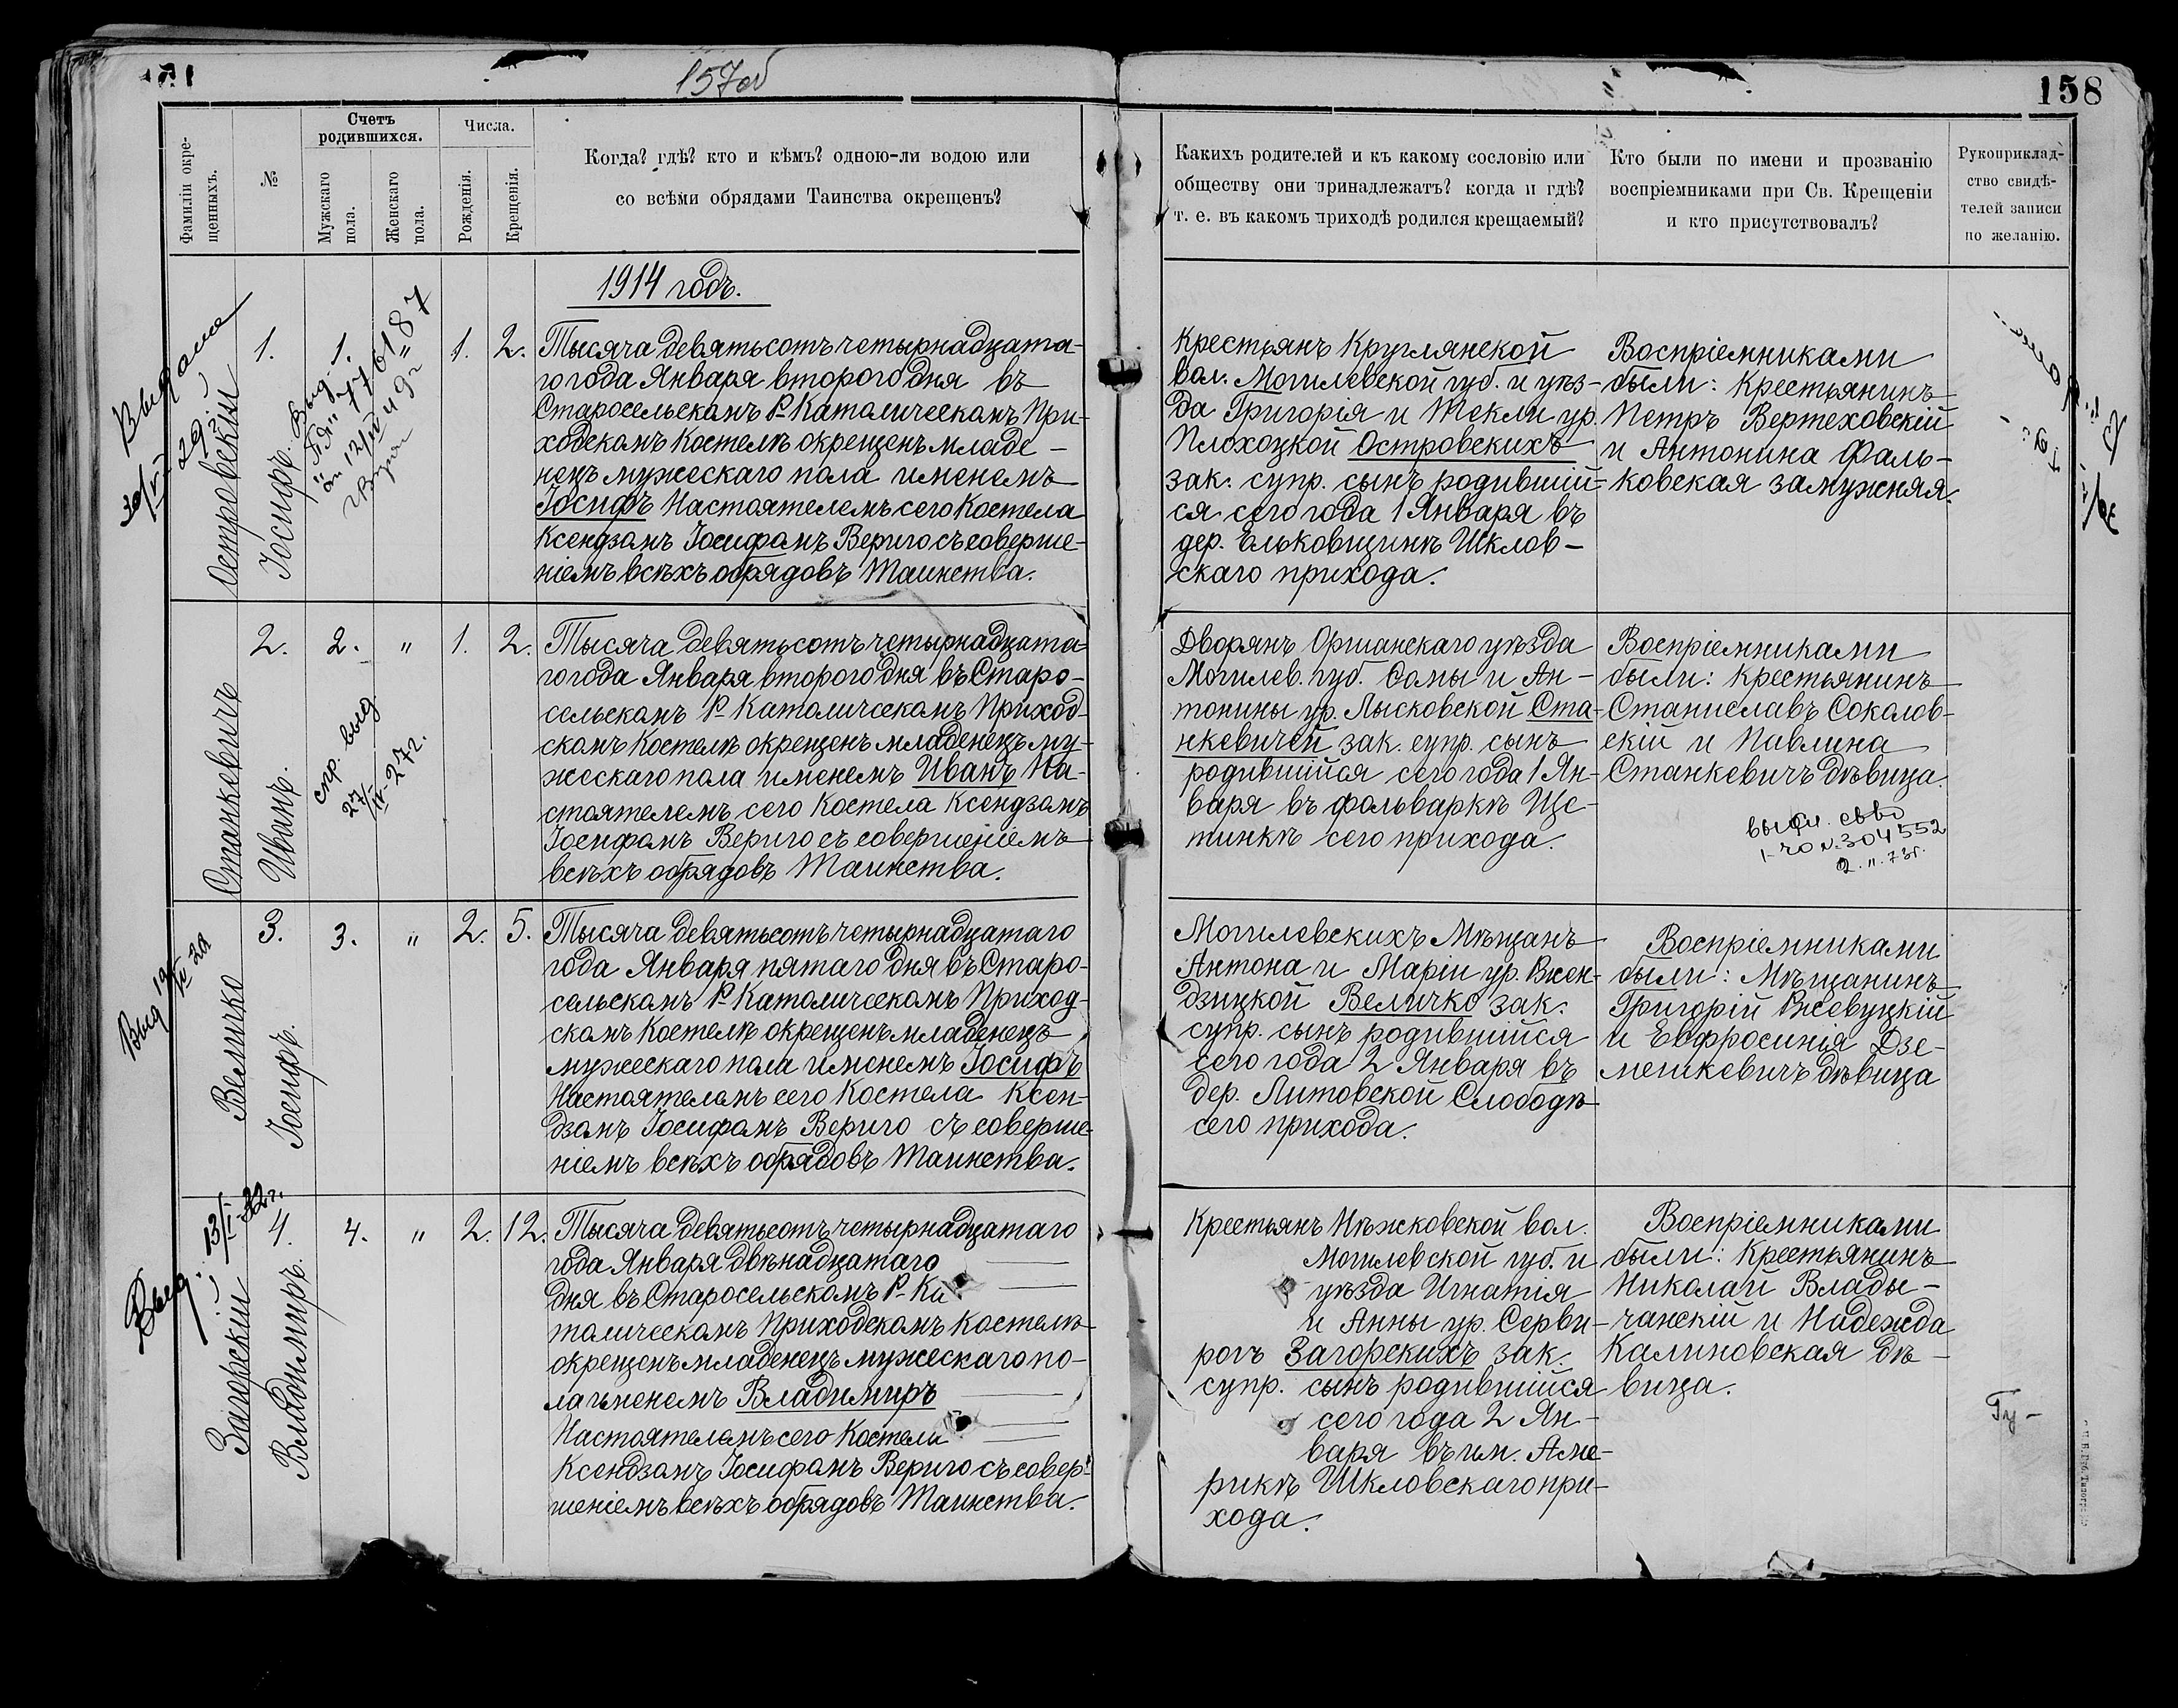 157об
158
Фамиліи окре-
щенныхъ.
№
Счетъ
родившихся.
Мужскаго
пола.
Женскаго
пола.
Числа.
Рожденія.
Крещенія.
Когда? гдѣ? кто и кѣмъ? одною-ли водою или
со всѣми обрядами Таинства окрещенъ?
Какихъ родителей и къ какому сословію или
обществу они принадлежатъ? когда и гдѣ?
т. е. въ какомъ приходѣ родился крещаемый?
Кто были по имени и прозванію
воспріемниками при Св. Крещеніи
и кто присутствовалъ?
Рукоприклад-
ство свидѣ-
телей записи
по желанію.
1914 годъ.
Выдана
30/VI 29
Островскій
1.
Іосифъ.
1.
Выд.
776187
от 12/IV 49г
1.
2.
Тысяча девятьсотъ четырнадцата-
го года Января второго дня въ
Старосельскомъ Р-Католическомъ При-
ходскомъ Костелѣ окрещенъ младе-
нецъ мужескаго пола именемъ
Іосифъ Настоятелемъ сего Костела
Ксендзомъ Іосифомъ Вериго съ соверше-
ніемъ всѣхъ обрядовъ Таинства.
Крестьянъ Круглянской
вол. Могилевской губ. и уѣз-
да Григорія и Теклы ур.
Плохоцкой Островскихъ
зак. супр. сынъ родившій-
ся сего года 1 Января въ
дер. Ельковщинѣ Шклов-
скаго прихода.
Воспріемниками
были: Крестьянинъ
Петръ Вертеховскій
и Антонина Фаль-
ковская замужняя.
Станкевичъ
2.
Иванъ.
2.
"
спр. выд.
27/IV-27г.
1.
2.
Тысяча девятьсотъ четырнадцата-
го года Января второго дня въ Старо-
сельскомъ Р-Католическомъ Приход-
скомъ Костелѣ окрещенъ младенецъ му-
жескаго пола именемъ Иванъ На-
стоятелемъ сего Костела Ксендзомъ
Іосифомъ Вериго съ совершеніемъ
всѣхъ обрядовъ Таинства.
Дворянъ Оршанскаго уѣзда
Могилев. губ. Фомы и Ан-
тонины ур. Лысковской Ста-
нкевичей зак. супр. сынъ
родившійся сего года 1 Ян-
варя въ фольваркѣ Ще-
тинкѣ сего прихода.
Воспріемниками
были: Крестьянинъ
Станиславъ Соколов-
скій и Павлина
Станкевичъ дѣвица.
свво
N.304552
2.II.73г.
Выд 19/IV 28
Величко
3.
Іосифъ.
3.
"
2.
5.
Тысяча девятьсотъ четырнадцатаго
года Января пятаго дня въ Старо-
сельскомъ Р-Католическомъ Приход-
скомъ Костелѣ окрещенъ младенецъ
мужескаго пола именемъ Іосифъ
Настоятелемъ сего Костела Ксен-
дзомъ Іосифомъ Вериго съ соверше-
ніемъ всѣхъ обрядовъ Таинства.
Могилевскихъ Мѣщанъ
Антона и Маріи ур. Вжен-
дзицкой Величко зак.
супр. сынъ родившійся
сего года 2 Января въ
дер. Литовской Слободѣ
сего прихода.
Воспріемниками
были: Мѣщанинъ
Григорій Ржевуцкій
и Евфросинія Дзе-
мешкевичъ дѣвица
Выд. 13/I-32г.
Загорскій
4.
Владимиръ.
4.
"
2.
12.
Тысяча девятьсотъ четырнадцатаго
года Января двѣнадцатаго
дня въ Старосельскомъ Р-Ка
толическомъ Приходскомъ Костелѣ
окрещенъ младенецъ мужескаго по-
ла именемъ Владимиръ
Настоятелемъ сего Костела
Ксендзомъ Іосифомъ Вериго съ совер-
шеніемъ всѣхъ обрядовъ Таинства.
Крестьянъ Нѣжковской вол.
Могилевской губ. и
уѣзда Игнатія
и Анны ур. Серви-
рогъ Загорскихъ зак.
супр. сынъ родившійся
сего года 2 Ян-
варя въ им. Аме-
рикѣ Шкловскаго при-
хода.
Воспріемниками
были: Крестьянинъ
Николай Влады-
чанскій и Надежда
Калиновская дѣ-
вица.
Гу-